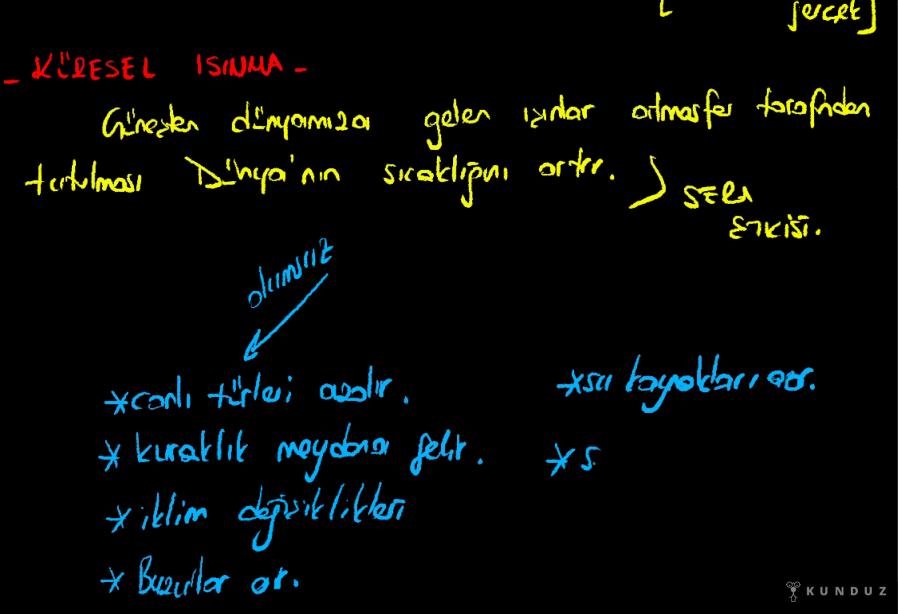 gerçek]
_ KÜRESEL ISINMA -
Güneşten dünyamıza gelen ışınlar atmosfer tarafından
tutulması Dünya'nın sıcaklığını artır. } SERA
ETKİSİ.
olumsuz
*canlı türleri azalır.
* kuraklık meydana gelir.
*iklim değişiklikleri
* Buzullar er.
*su kaynakları az.
* s.
KUNDUZ